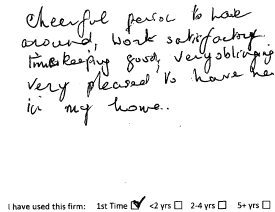 Cheerful person to have
around, work satisfactory
timekeeping good, very obliging
very pleased to have her
in my home..
I have used this firm: 1st Time ☑ <2 yrs ☐ 2-4 yrs ☐ 5+ yrs ☐